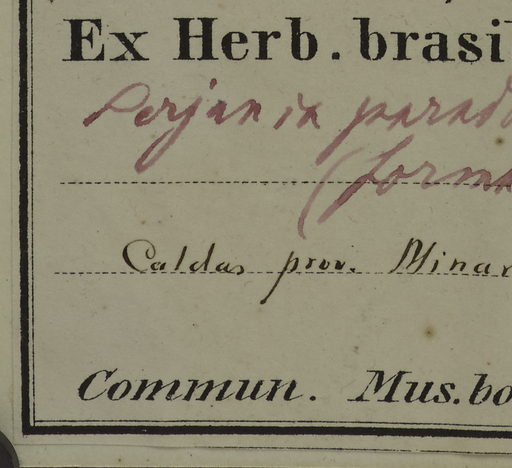 Ex Herb. brasi
Serjania parad
(forma
Caldas prov. Minar
Commun. Mus. bo